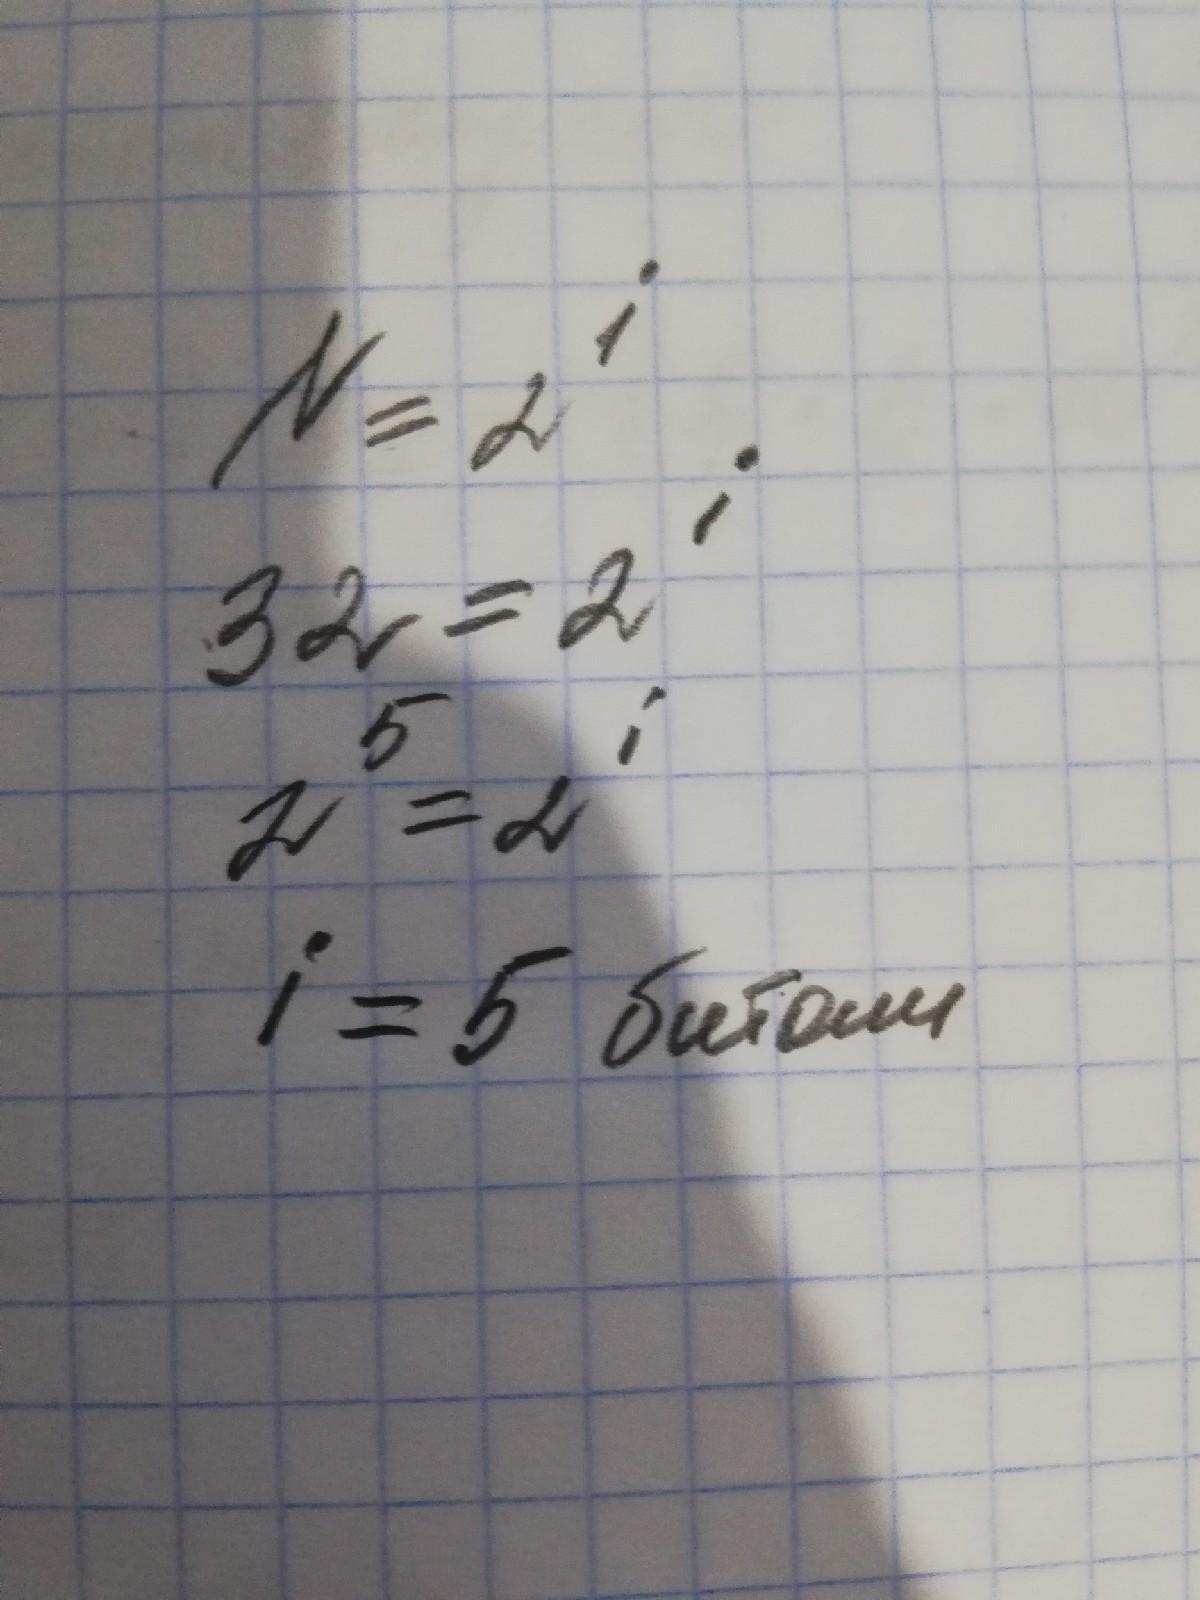 N = 2^i
32 = 2^i
2^5 = 2^i
i = 5 битами